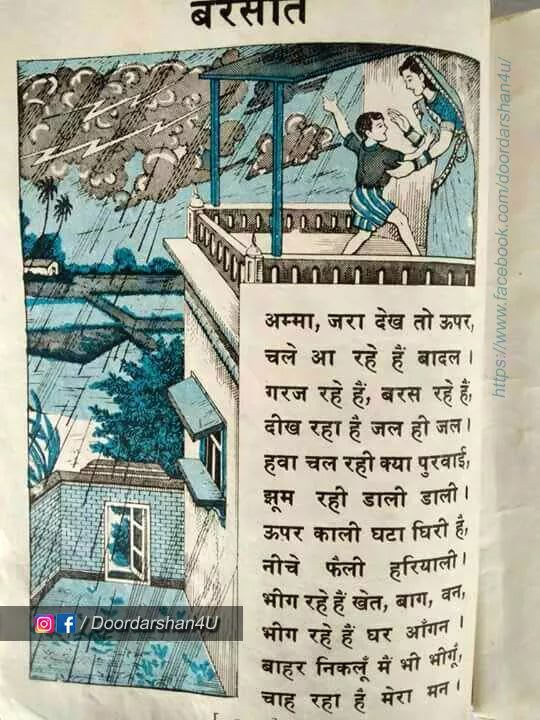 बरसात
अम्मा, जरा देख तो ऊपर,
चले आ रहे हैं बादल।
गरज रहे हैं, बरस रहे हैं,
दीख रहा है जल ही जल।
हवा चल रही क्या पुरवाई,
झूम रही डाली डाली।
ऊपर काली घटा घिरी है,
नीचे फैली हरियाली।
भीग रहे हैं खेत, बाग, वन,
भीग रहे हैं घर आँगन।
बाहर निकलूँ मैं भी भीगूँ,
चाह रहा है मेरा मन।
/ Doordarshan4U
https://www.facebook.com/doordarshan4u/